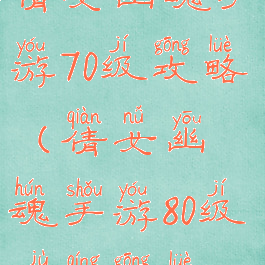 倩女幽魂手
yóu jí gōng lüè
游70级攻略
qiàn nǚ yōu
(倩女幽
hún shǒu yóu jí
魂手游80级
jù qíng gōng lüè